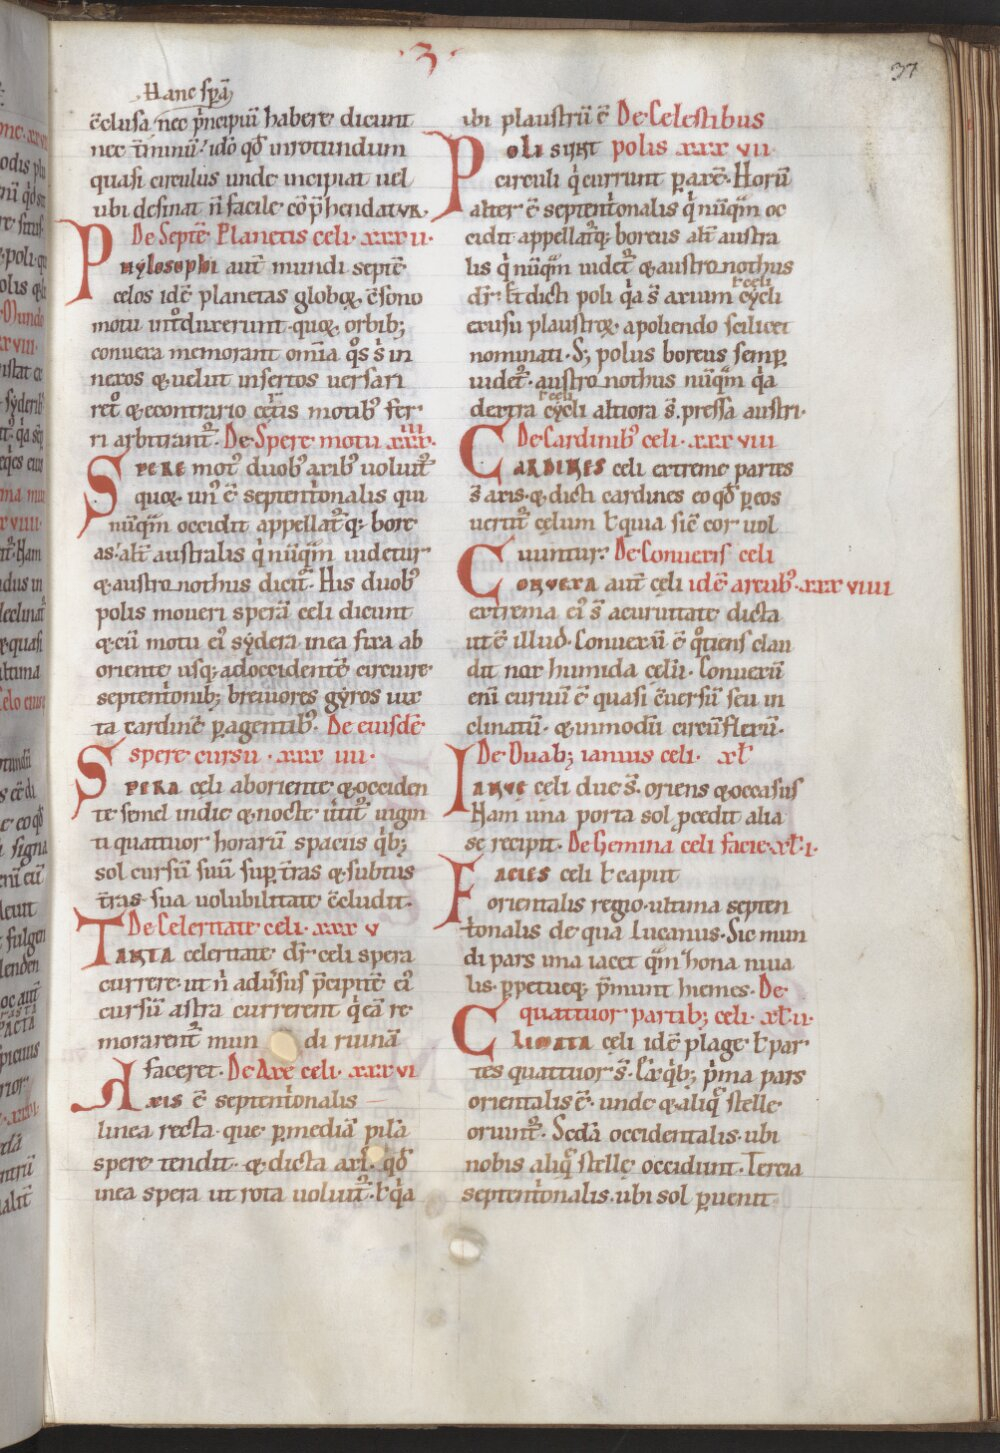 ·3·
37
Hanc sp̄ā
ēclusa nec p̄ncipiū habere dicunt
nec t̄minū· idō qđ inrotundum
quasi circulus unde incipiat uel
ubi desinat n̄ facile cōp̄hendatur.
De Septē Planetis celi· xxxii·
Phylosophi aut̄ mundi septē
celos idē planetas globoꝝ cōsono
motu int°duxerunt· quoꝝ orbib;
conuexa memorant om̄ia q°s s̄ in
nexos & uelut insertos uersari
ret° & econtrario cęt̄is motib; fer
ri arbitrant᷑· De Spere motu xxxiii·
Spere mot᷒ duob᷒ axib᷒ uoluit᷑
quoꝝ· un᷒ ē septent̓onalis qui
nūq̄m occidit appellat᷑q; bore
as· alt̄ australis q̓ nūq̄m uidetur
& austro nothus dicit᷑· His duob᷒
polis moueri sperā celi dicunt
& cū motu ei᷒ sydera inea fixa ab
oriente usq; adoccidentē circuire·
septent̓onib; breuiores gyros iux
ta cardinē ꝑagentib᷒· De eiusdē
spere cursu· xxx iiii·
Spera celi aboriente & occiden
te semel indie & nocte ūtit᷑ uigin
ti quattuor horarū spaciis q̓b;
sol cursū suū suꝑ t̄ras & subtus
t̄ras sua uolubilitate c̄cludit·
De Celeritate celi· xxx v
Tanta celeritate dr̄ celi spera
currere· ut n̄ aduersus p̄cipitē ei᷒
cursū astra currerent q̓ eā re
morarent᷑ mun di ruinā
faceret· De Axe celi· xxx vi
Axis ē septent̓onalis
linea recta· que ꝑmediā pilā
spere tendit· & dicta axis· qđ
inea spera ut rota uoluit᷑· ł q̓a
ibi plaustrū ē De Celestibus
Poli sunt polis xxx vii
circuli q̓ currunt ꝑ axē· Horū
alter ē septent̓onalis q̓ nūq̄m oc
cidit appellat᷑q; boreus alt̄ austra
lis q̓ nūq̄m uidet᷑ & austro nothus
ł celi
dr̄· Et dicti poli q̓a s̄ axium cycli
exusu plaustroꝝ· apoliendo scilicet
nominati· S; polus boreus semꝑ
uidet᷑· austro nothus nūq̄m q̓a
ł celi
dextra cycli altiora s̄· pressa austri·
De Cardinib᷒ celi· xxx viii
Cardines celi extreme partes
s̄ axis· & dicti cardines eo qđ ꝑ eos
uertit᷑ cęlum ł quia sic̄ cor uol
uuntur· De Conuexis celi
Conuexa aut̄ cęli idē arcub᷒· xxx viiii
extrema ei᷒ s̄ acuruitate dicta
ut ē illud· Conuexū ē q°tiens clau
dit nox humida celū· Conuexū
enī curuū ē quasi c̄uersū seu in
clinatū· & inmodū circūflexū·
De Duab; ianuis celi· xl
Ianue cęli due s̄· oriens & occasus
Nam una porta sol p̄cedit alia
se recipit· De Gemina celi facie· xl·i·
Facies celi ł caput
orientalis regio· ultima septen
t̓onalis de qua Lucanus· Sic mun
di pars ima iacet q̄m hona niua
lis· ꝑpetueq; p̄munt hiemes· De
quattuor partib; celi· xl·ii·
Climata celi idē plage ł par
tes quattuor s̄· Ex q̓b; p̓ma pars
orientalis ē· unde & aliq̄ stelle
oriunt᷑· Sc̄da occidentalis· ubi
nobis aliq̄ stellę occidunt· Tercia
septent̓onalis· ubi sol ꝑuenit